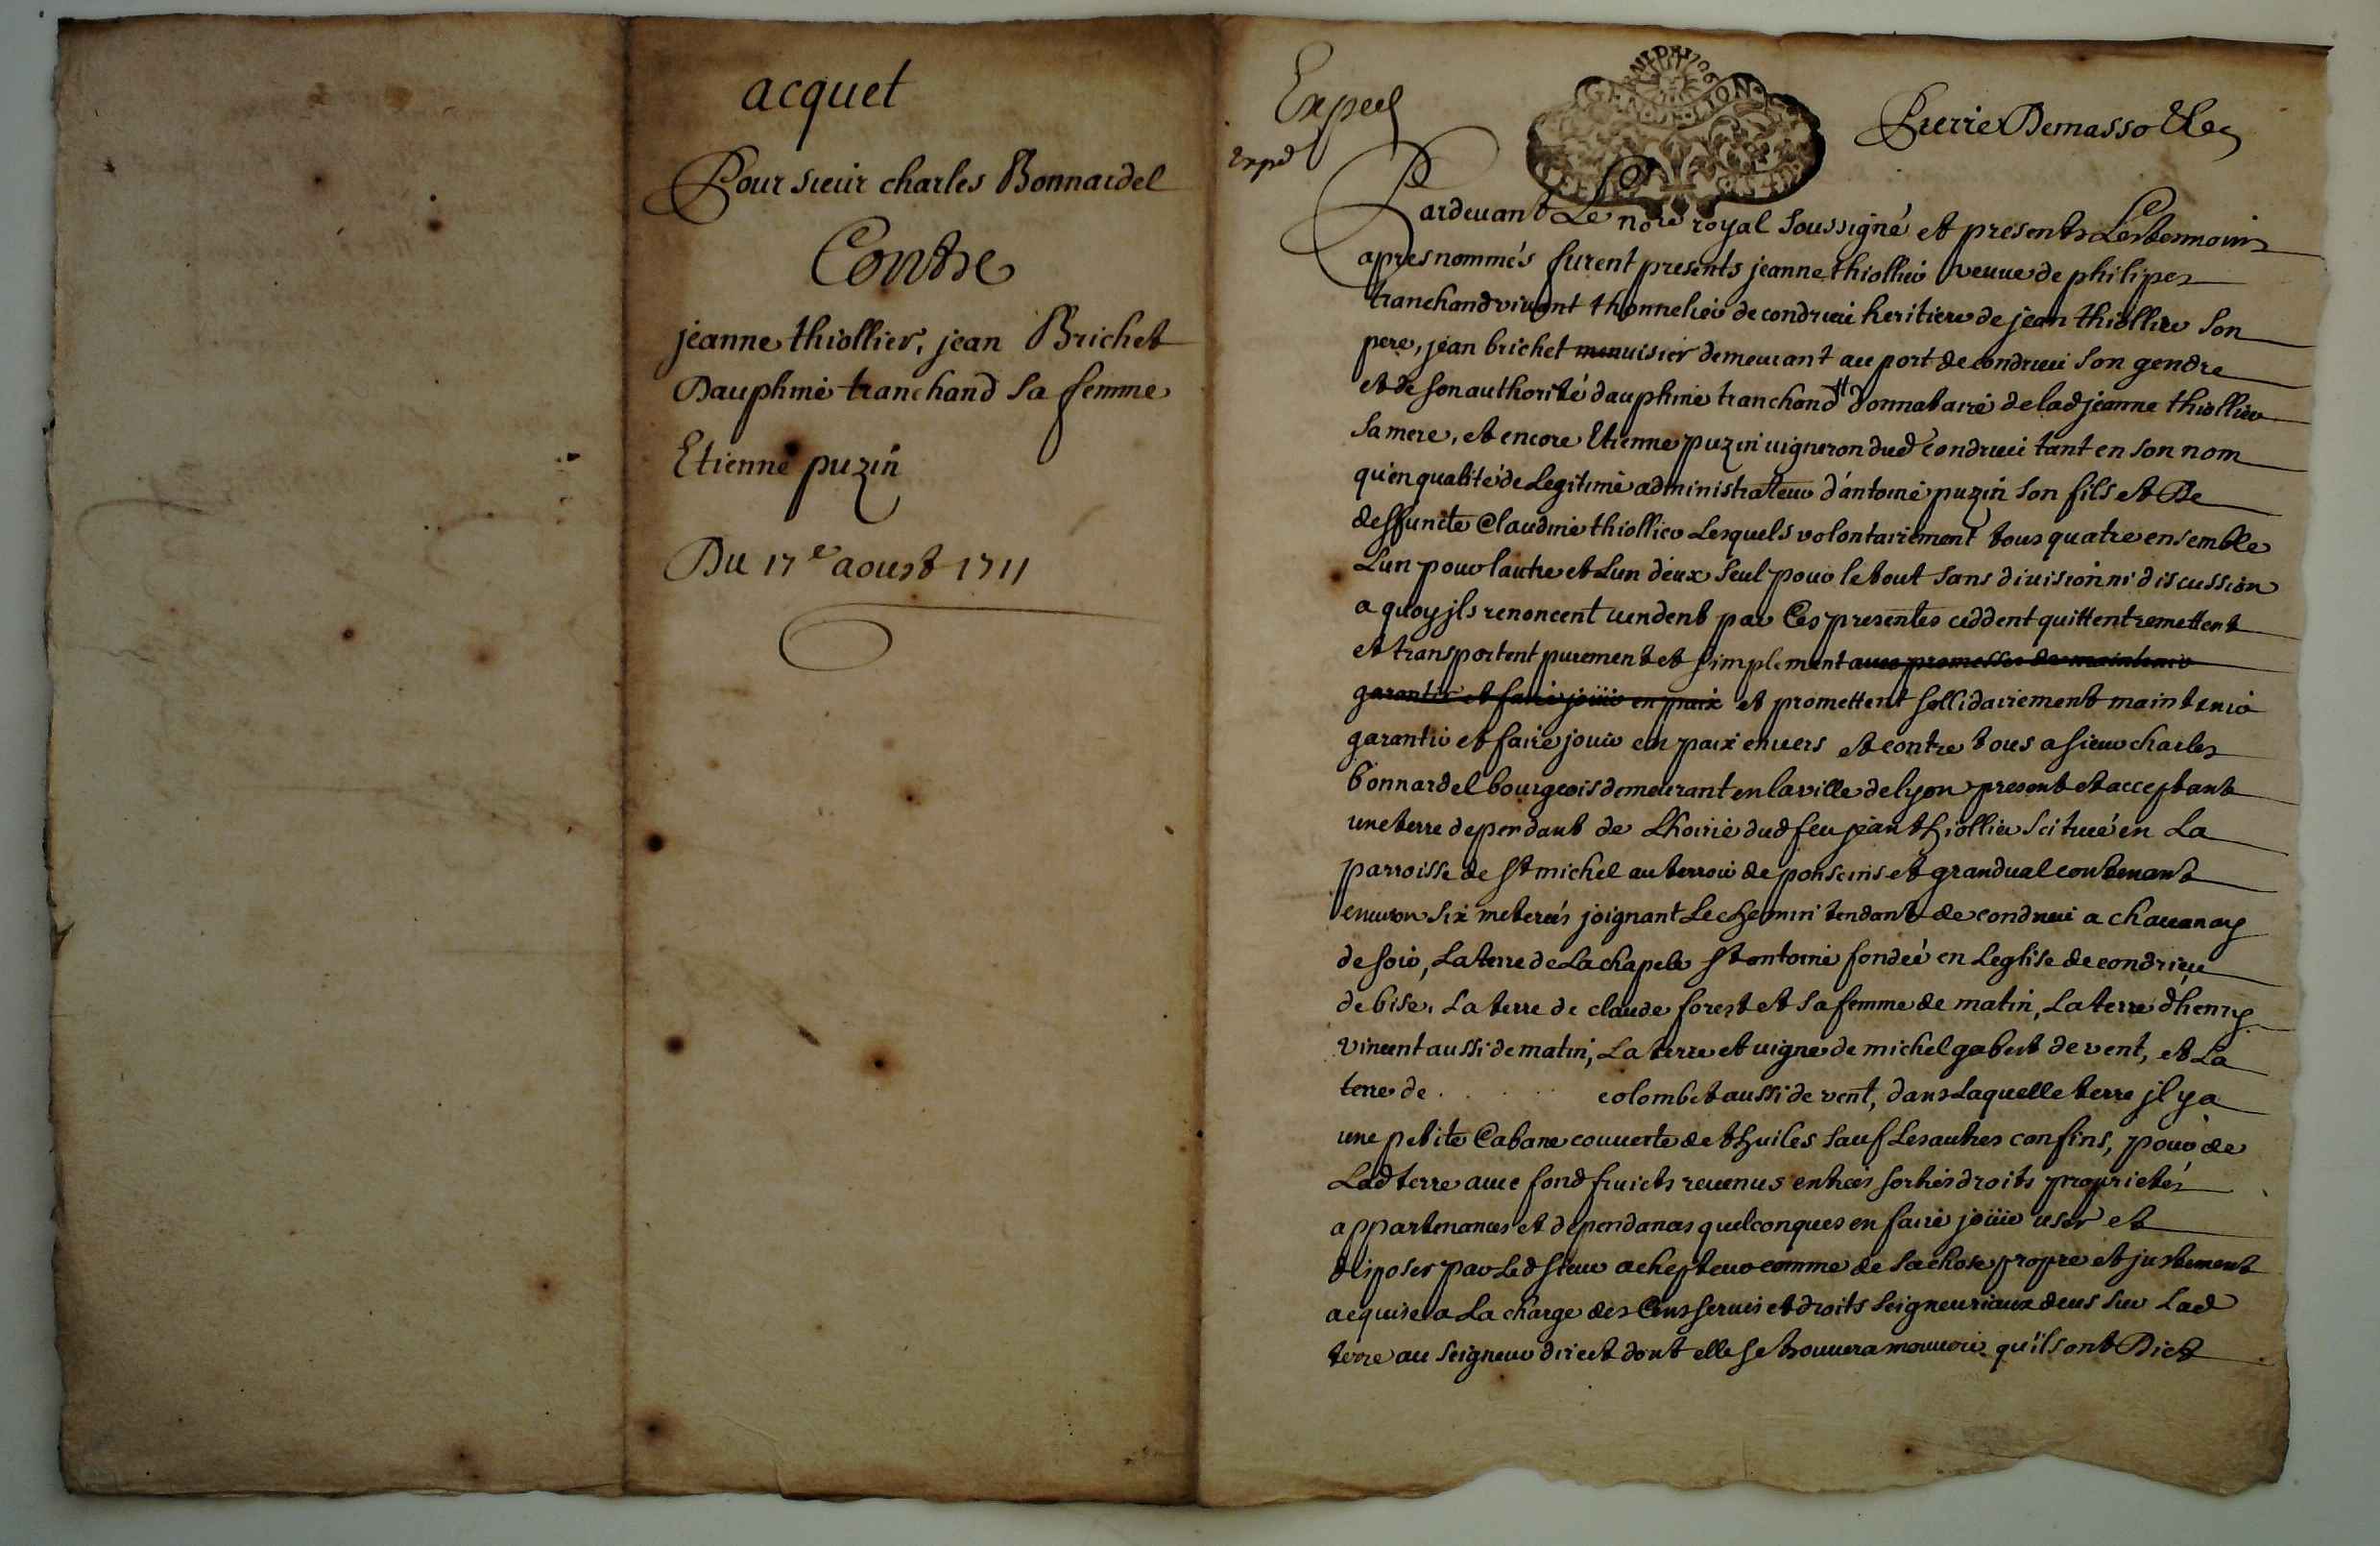 acquet
Pour sieur charles Bonnardel
Contre
jeanne thiollier, jean Brichet
Dauphine tranchand sa femme
Etienne puzin
Du 17e aoust 1711
Exped
Expd
GENERALITE DE LION
Pierre Demasso
Pardevant Le nore royal soussigné et presents Les temoins
apres nommés furent presents jeanne thiollier veuve de philipes
tranchand vivant thonnelier de condrieu heritiere de jean thiollier son
pere, jean brichet menuisier demeurant au port de condrieu son gendre
et de son authorité dauphine tranchand donnataire de lad jeanne thiollier
sa mere, et encore Etienne puzin vigneron dud condrieu tant en son nom
qu'en qualité de Legitime administrateur d'antoine puzin son fils et De
deffuncte Claudine thiollier Lesquels volontairement tous quatre ensemble
L'un pour lautre et Lun deux seul pour le tout sans division ni discussion
a quoy jls renoncent vendent par Ces presentes ceddent quittent remettent
et transportent purement et simplement avec promesses de maintenir
garantir et faire joüir en paix et promettent sollidairement maintenir
garantir et faire jouir en paix envers et contre tous a sieur charles
bonnardel bourgeois demeurant en la ville de lyon present et acceptant
une terre dependant de Lhoirie dud feu jean thiollier scitueé en La
parroisse de st michel au terroir de ponseins et grandval contenant
environ six metereés joignant Le chemin tendant de condrieu a chavanay
de soir, La terre de La chapele st antoine fondeé en Leglise de condrieu
de bise, La terre de claude forest et sa femme de matin, La terre d'henry
vincent aussi de matin, La terre et vigne de michel gabert de vent, et La
terre de . . . colombet aussi de vent, dans Laquelle terre jl y a
une petite Cabane couverte de thuiles sauf Les autres confins, pour de
Lad terre avec fond fruicts revenus entrées sorties droits proprietés
appartenances et dependances quelconques en faire joüir user et
disposer par Led sieur achepteur comme de sa chose propre et justement
acquise a La charge des Cens servis et droits seigneuriaux deus sur Lad
terre au seigneur direct dont elle se trouvera mouvoir qu'ils ont Dict